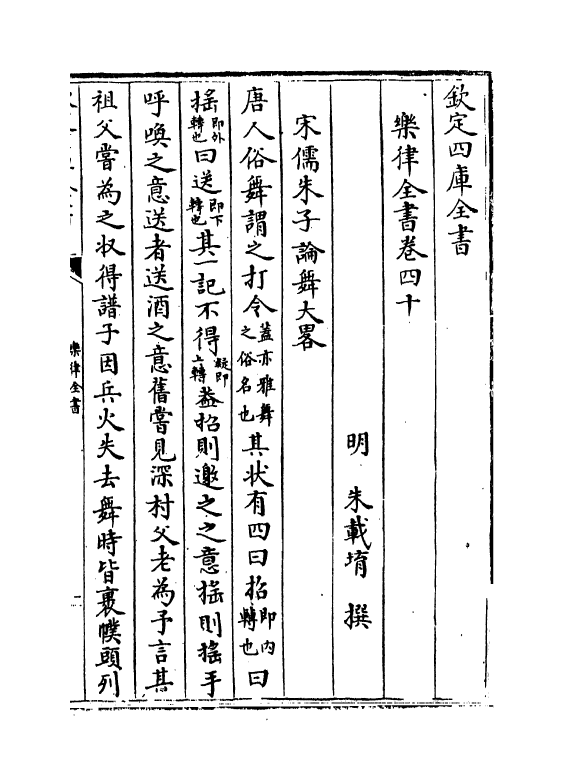 欽定四庫全書
樂律全書卷四十
明 朱載堉 撰
宋儒朱子論舞大畧
唐人俗舞謂之打令蓋亦雅舞之俗名也其状有四曰招即内轉也曰
揺即外轉也曰送即下轉也其一記不得疑即上轉葢招則邀之之意揺則揺手
呼喚之意送者送酒之意舊嘗見深村父老為予言其
祖父嘗為之収得譜子因兵火失去舞時皆裹幞頭列
樂律全書